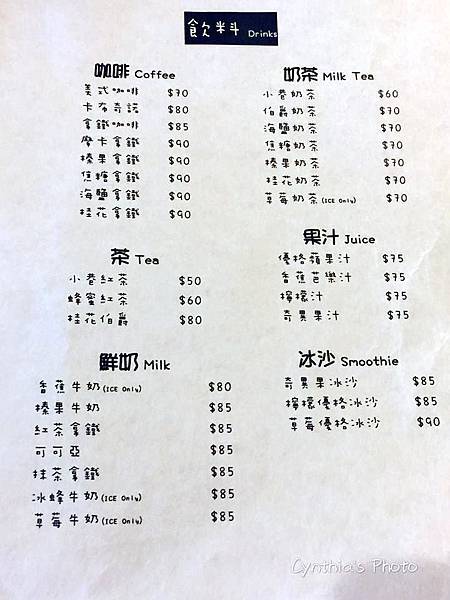 飲料 Drinks
咖啡 Coffee
美式咖啡 $70
卡布奇諾 $80
拿鐵咖啡 $85
摩卡拿鐵 $90
榛果拿鐵 $90
焦糖拿鐵 $90
海鹽拿鐵 $90
桂花拿鐵 $90
茶 Tea
小巷紅茶 $50
蜂蜜紅茶 $60
桂花伯爵 $80
鮮奶 Milk
香蕉牛奶(ICE Only) $80
榛果牛奶 $85
紅茶拿鐵 $85
可可亞 $85
抹茶拿鐵 $85
冰蜂牛奶(ICE Only) $85
草莓牛奶(ICE Only) $85
奶茶 Milk Tea
小巷奶茶 $60
伯爵奶茶 $70
海鹽奶茶 $70
焦糖奶茶 $70
榛果奶茶 $70
桂花奶茶 $70
草莓奶茶(ICE Only) $70
果汁 Juice
優格蘋果汁 $75
香蕉芭樂汁 $75
檸檬汁 $75
奇異果汁 $75
冰沙 Smoothie
奇異果冰沙 $85
檸檬優格冰沙 $85
草莓優格冰沙 $90
Cynthia's Photo